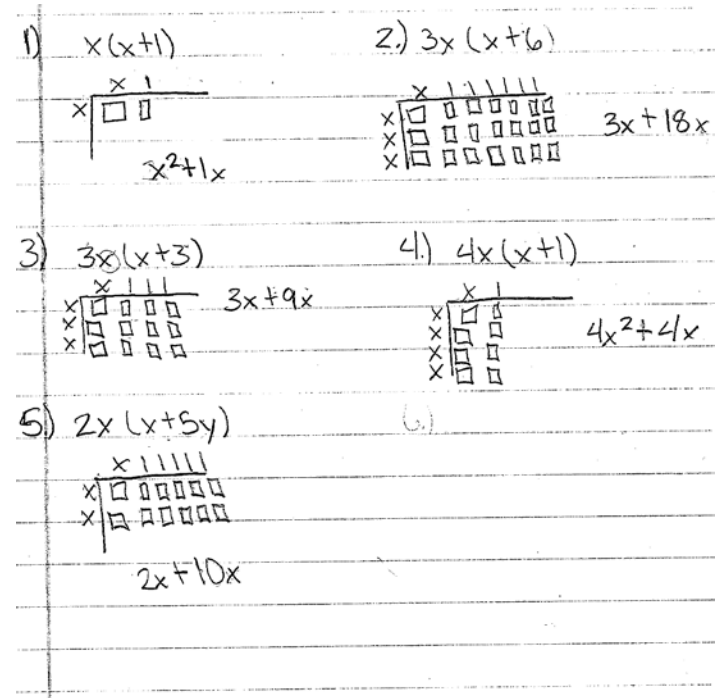 1) x(x+1)
x 1
x
x²+1x
2.) 3x(x+6)
x 1 1 1 1 1 1
x
x
x
3x+18x
3) 3x(x+3)
x 1 1 1
x
x
x
3x+9x
4.) 4x(x+1)
x 1
x
x
x
x
4x²+4x
5) 2x(x+5y)
x 1 1 1 1 1
x
x
2x+10x
6.)